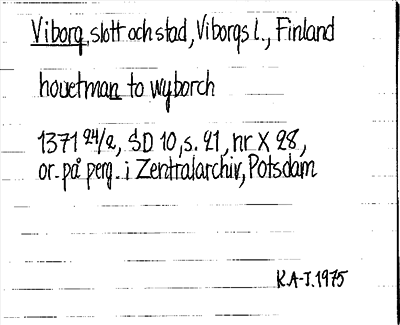 Viborg, slott och stad, Viborgs l., Finland
houetman to wyborch
1371 24/2, SD 10, s. 21, nr X 28,
or. på perg. i Zentralarchiv, Potsdam
K.A-J. 1975